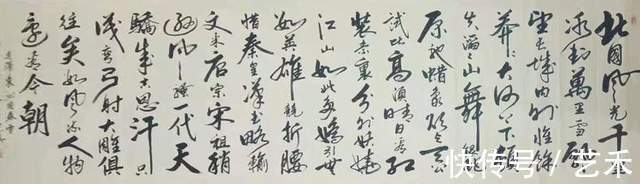 北國风光千
冰封萬里雪飘
望长城内外惟馀
莽莽大河上下顿
失滔滔山舞银蛇
原驰蜡象欲与天公
试比高须晴日看红
装素裹分外妖娆
江山如此多嬌引无
数英雄竞折腰
惜秦皇漢武略输
文采唐宗宋祖稍
逊风骚一代天
驕成吉思汗只
识弯弓射大雕俱
往矣数风流人物
还看今朝
毛泽东沁园春雪
快传号/艺禾